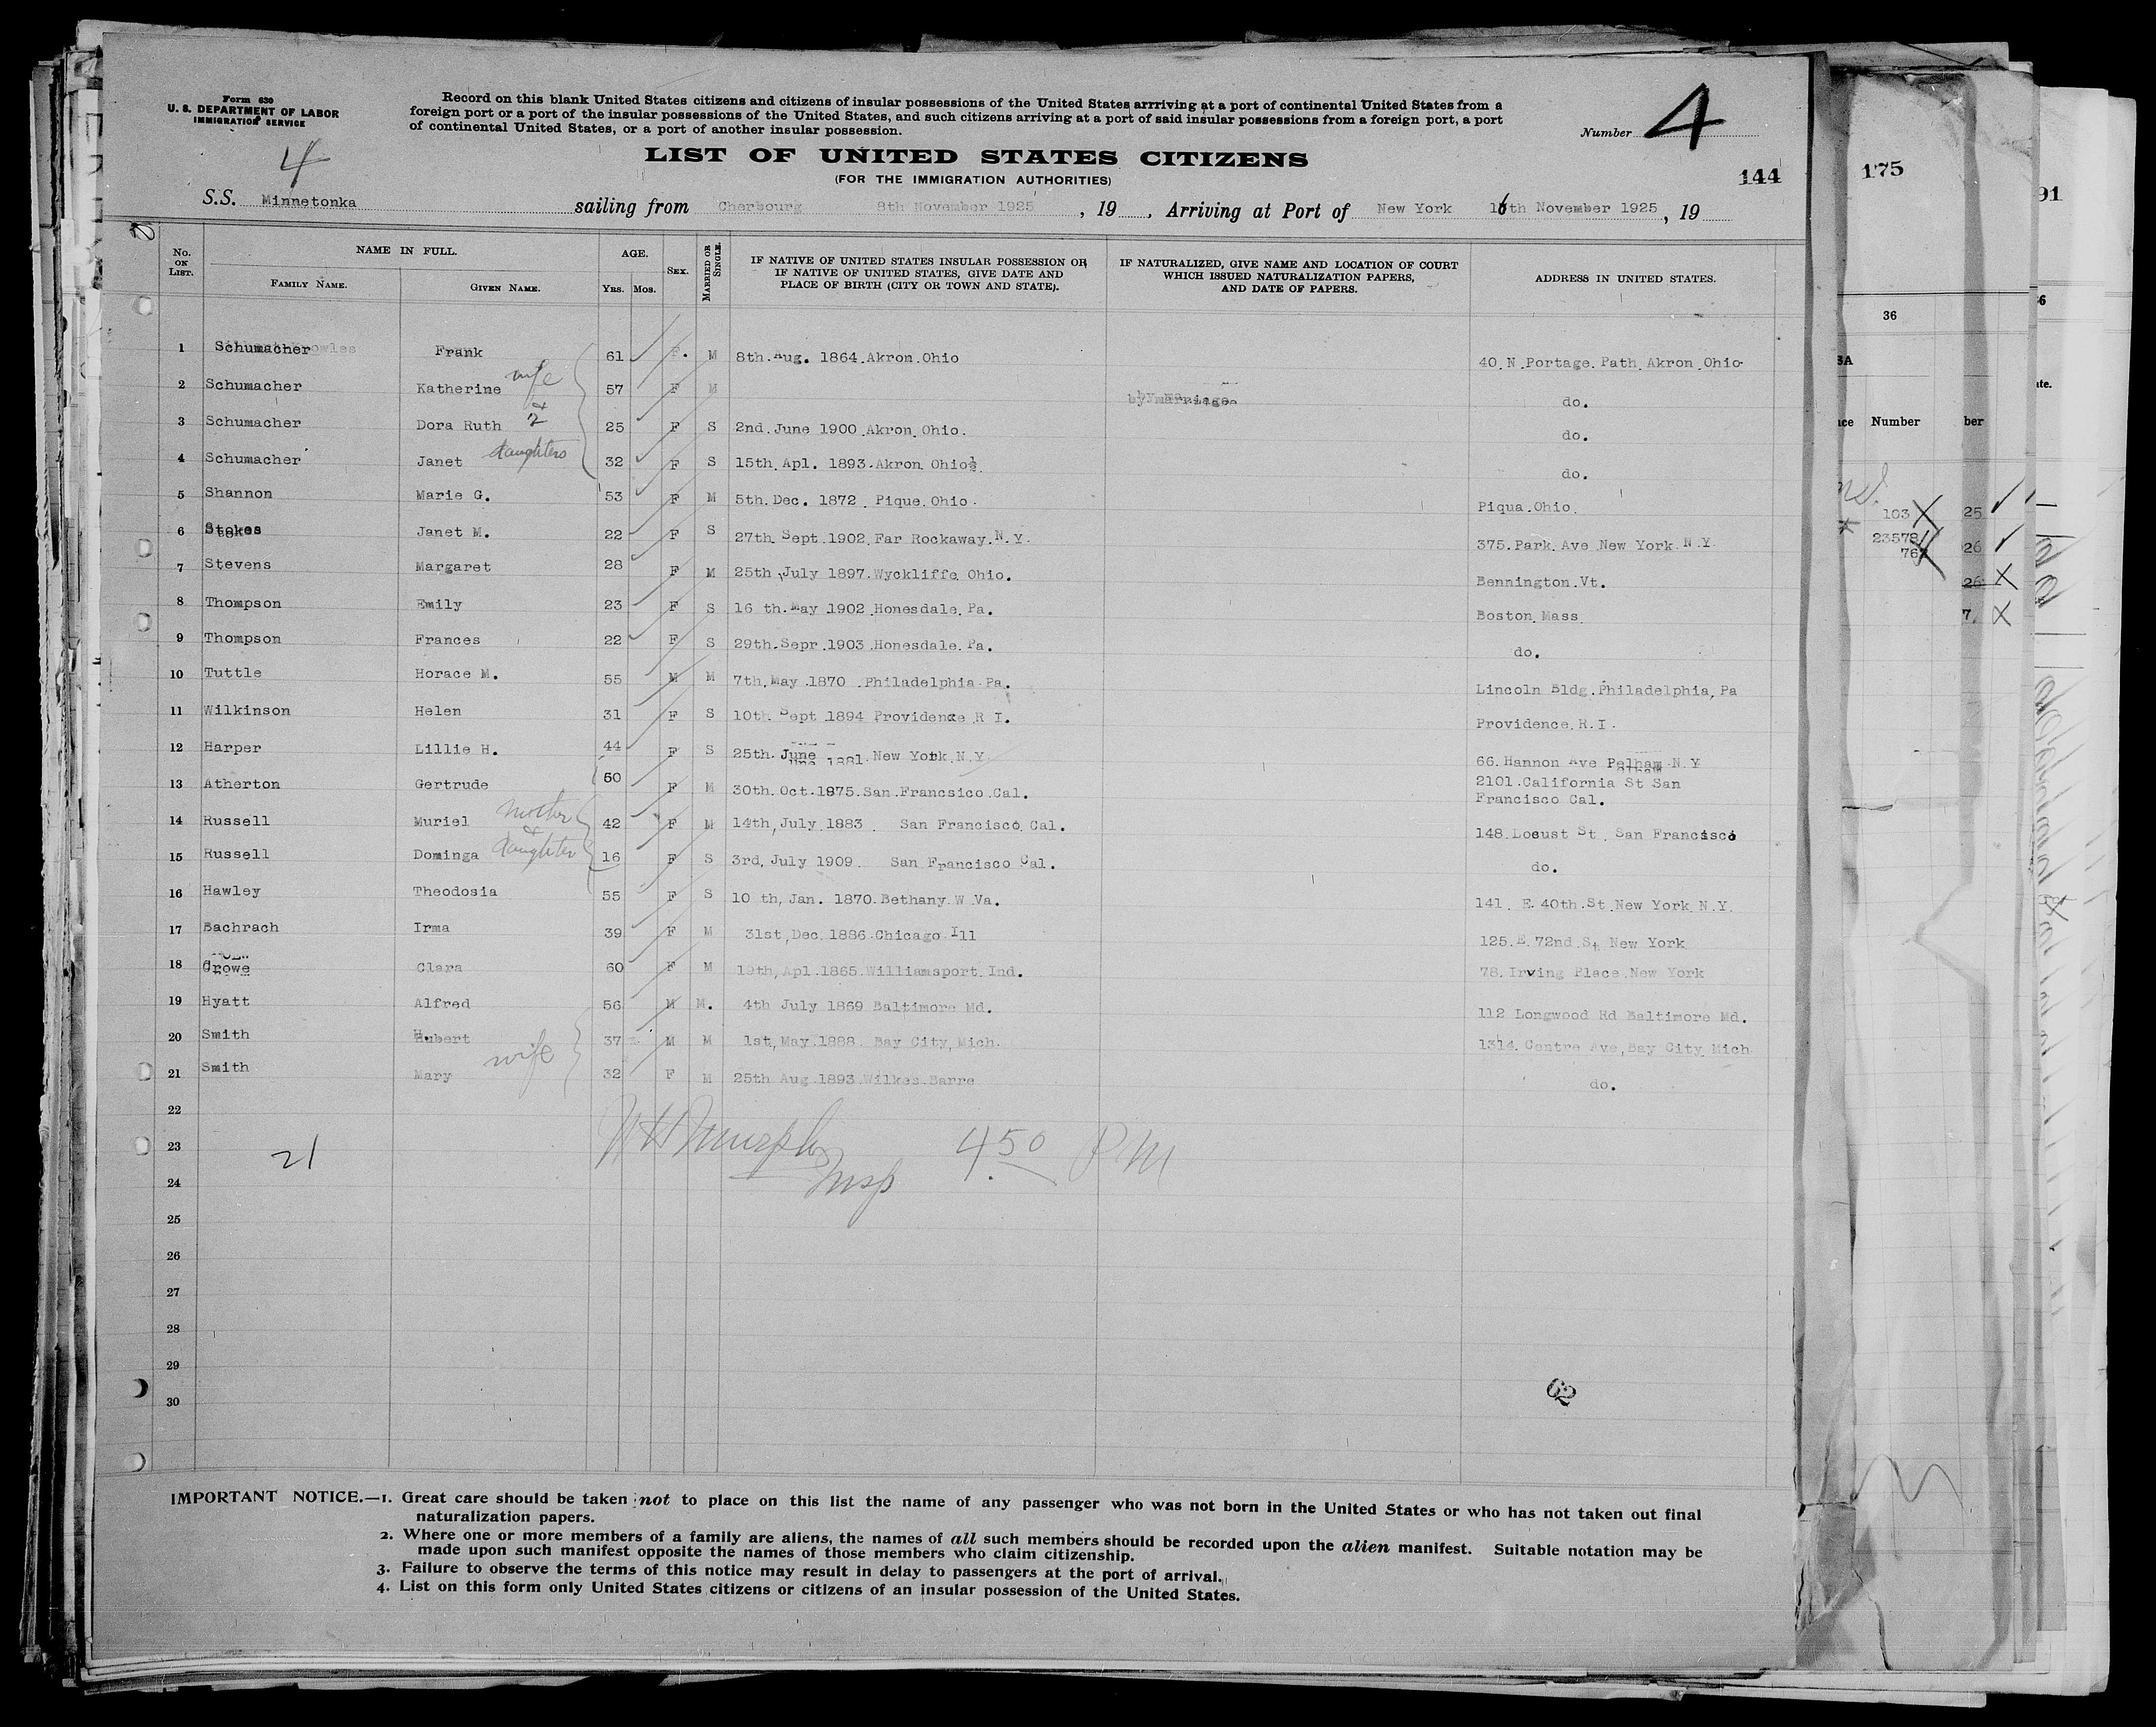 Form 630
U. S. DEPARTMENT OF LABOR
IMMIGRATION SERVICE
Record on this blank United States citizens and citizens of insular possessions of the United States arrriving at a port of continental United States from a
foreign port or a port of the insular possessions of the United States, and such citizens arriving at a port of said insular possessions from a foreign port, a port
of continental United States, or a port of another insular possession.
Number 4
4
LIST OF UNITED STATES CITIZENS
(FOR THE IMMIGRATION AUTHORITIES)
144
S.S. Minnetonka sailing from Cherbourg 8th November 1925, 19 , Arriving at Port of New York 16th November 1925, 19
No. ON LIST. NAME IN FULL. FAMILY NAME. GIVEN NAME. AGE. YRS. MOS. SEX. MARRIED OR SINGLE. IF NATIVE OF UNITED STATES INSULAR POSSESSION OR IF NATIVE OF UNITED STATES, GIVE DATE AND PLACE OF BIRTH (CITY OR TOWN AND STATE). IF NATURALIZED, GIVE NAME AND LOCATION OF COURT WHICH ISSUED NATURALIZATION PAPERS, AND DATE OF PAPERS. ADDRESS IN UNITED STATES.
1 Schumacher Frank 61 F. M 8th.Aug. 1864.Akron.Ohio 40.N.Portage.Path.Akron.Ohio
2 Schumacher Katherine wife 57 F M by marriage do.
3 Schumacher Dora Ruth & 2 25 F S 2nd.June 1900.Akron.Ohio. do.
4 Schumacher Janet daughters 32 F S 15th.Apl. 1893.Akron.Ohio. do.
5 Shannon Marie G. 53 F M 5th.Dec. 1872. Pique.Ohio. Piqua.Ohio.
6 Stokes Janet M. 22 F S 27th.Sept.1902.Far Rockaway.N.Y. 375.Park.Ave New York N.Y.
7 Stevens Margaret 28 F M 25th.July 1897.Wyckliffe Ohio. Bennington.Vt.
8 Thompson Emily 23 F S 16 th.May 1902.Honesdale.Pa. Boston.Mass.
9 Thompson Frances 22 F S 29th.Sepr.1903.Honesdale.Pa. do.
10 Tuttle Horace M. 55 M M 7th.May.1870.Philadelphia.Pa. Lincoln Bldg.Philadelphia, Pa
11 Wilkinson Helen 31 F S 10th.Sept.1894 Providence R I. Providence.R.I.
12 Harper Lillie H. 44 F S 25th.June 1881.New York.N.Y. 66.Hannon Ave Pelham.N.Y
13 Atherton Gertrude 50 F M 30th.Oct.1875.San.Francsico.Cal. 2101.California St San
Francisco Cal.
14 Russell Muriel mother 42 F M 14th,July 1883. San Francisco.Cal. 148.Locust St. San Francisco
15 Russell Dominga & daughter 16 F S 3rd,July 1909 San Francisco Cal. do.
16 Hawley Theodosia 55 F S 10 th,Jan. 1870.Bethany.W.Va. 141. E.40th.St.New York.N.Y.
17 Bachrach Irma 39 F M 31st,Dec.1886.Chicago.Ill 125.E.72nd.St New York
18 Crowe Clara 60 F M 19th,Apl.1865.Williamsport.Ind. 78.Irving Place.New York
19 Hyatt Alfred 56 M M. 4th July 1869 Baltimore Md. 112 Longwood Rd Baltimore Md.
20 Smith Hubert 37 M M 1st,May.1888. Bay City,Mich. 1314.Centre Ave,Bay City Mich
21 Smith Mary wife 32 F M 25th Aug.1893.Wilkes.Barre do.
22
23 21
24
Insp 4.50 PM
25
26
27
28
29
30
62
IMPORTANT NOTICE.—1. Great care should be taken not to place on this list the name of any passenger who was not born in the United States or who has not taken out final
naturalization papers.
2. Where one or more members of a family are aliens, the names of all such members should be recorded upon the alien manifest. Suitable notation may be
made upon such manifest opposite the names of those members who claim citizenship.
3. Failure to observe the terms of this notice may result in delay to passengers at the port of arrival.
4. List on this form only United States citizens or citizens of an insular possession of the United States.
175
91
36
Number
ber
103
23578
25
26
26
7